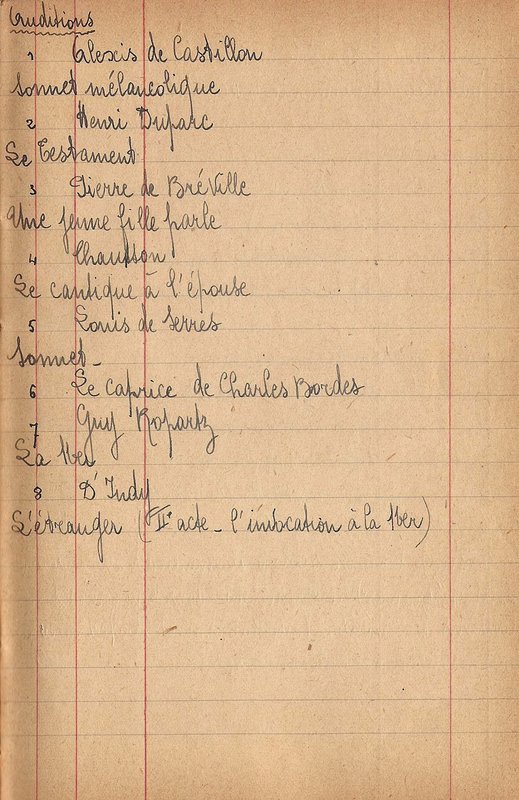 Auditions
1 Alexis de Castillon
Sonnet mélancolique
2 Henri Duparc
Le Testament
3 Pierre de Bréville
Une jeune fille parle
4 Chausson
Le cantique à l'épouse
5 Louis de Serres
Sonnet -
6 Le caprice de Charles Bordes
7 Guy Ropartz
La Mer
8 D'Indy
L'étranger (IIe acte - l'invocation à la Mer)